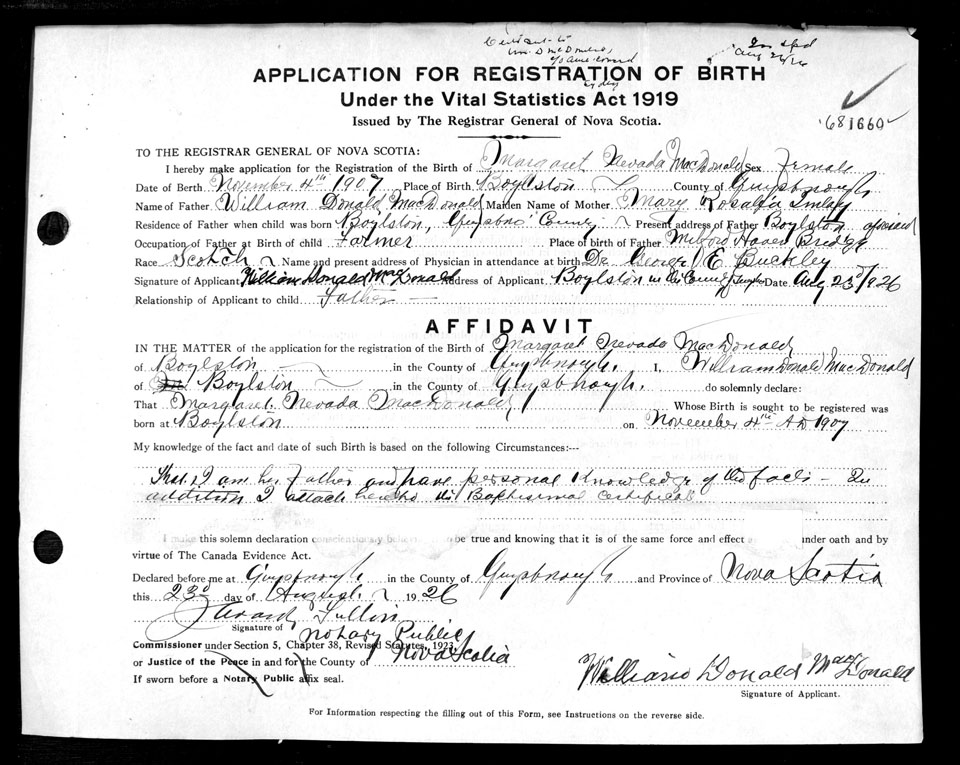 Aug 26/26
APPLICATION FOR REGISTRATION OF BIRTH
Under the Vital Statistics Act 1919
Issued by The Registrar General of Nova Scotia.
681660
TO THE REGISTRAR GENERAL OF NOVA SCOTIA:
I hereby make application for the Registration of the Birth of Margaret Nevada MacDonald Sex Female
Date of Birth November 4th 1907 Place of Birth Boylston County of Guysborough
Name of Father William Donald MacDonald Maiden Name of Mother Mary Rosalia
Residence of Father when child was born Boylston, Guysboro County Present address of Father Boylston aforesaid
Occupation of Father at Birth of child Farmer Place of birth of Father Milford Haven Bridge
Race Scotch Name and present address of Physician in attendance at birth Dr George E Buckley
Signature of Applicant William Donald MacDonald Address of Applicant Boylston in the County Date Aug 23rd 1926
Relationship of Applicant to child Father
AFFIDAVIT
IN THE MATTER of the application for the registration of the Birth of Margaret Nevada MacDonald
of Boylston in the County of Guysborough. I, William Donald MacDonald
of Boylston in the County of Guysborough. do solemnly declare:
That Margaret Nevada MacDonald Whose Birth is sought to be registered was
born at Boylston on November 4th AD 1907
My knowledge of the fact and date of such Birth is based on the following Circumstances:—
That I am her Father and have personal knowledge of the facts – In
addition I attach hereto the Baptismal Certificate
I make this solemn declaration conscientiously believing be true and knowing that it is of the same force and effect under oath and by
virtue of The Canada Evidence Act.
Declared before me at Guysborough in the County of Guysborough and Province of Nova Scotia
this 23d day of August 1926
Signature of Notary Public
Commissioner under Section 5, Chapter 38, Revised Statutes, 1923,
or Justice of the Peace in and for the County of Nova Scotia
If sworn before a Notary Public affix seal.
William Donald MacDonald
Signature of Applicant.
For Information respecting the filling out of this Form, see Instructions on the reverse side.